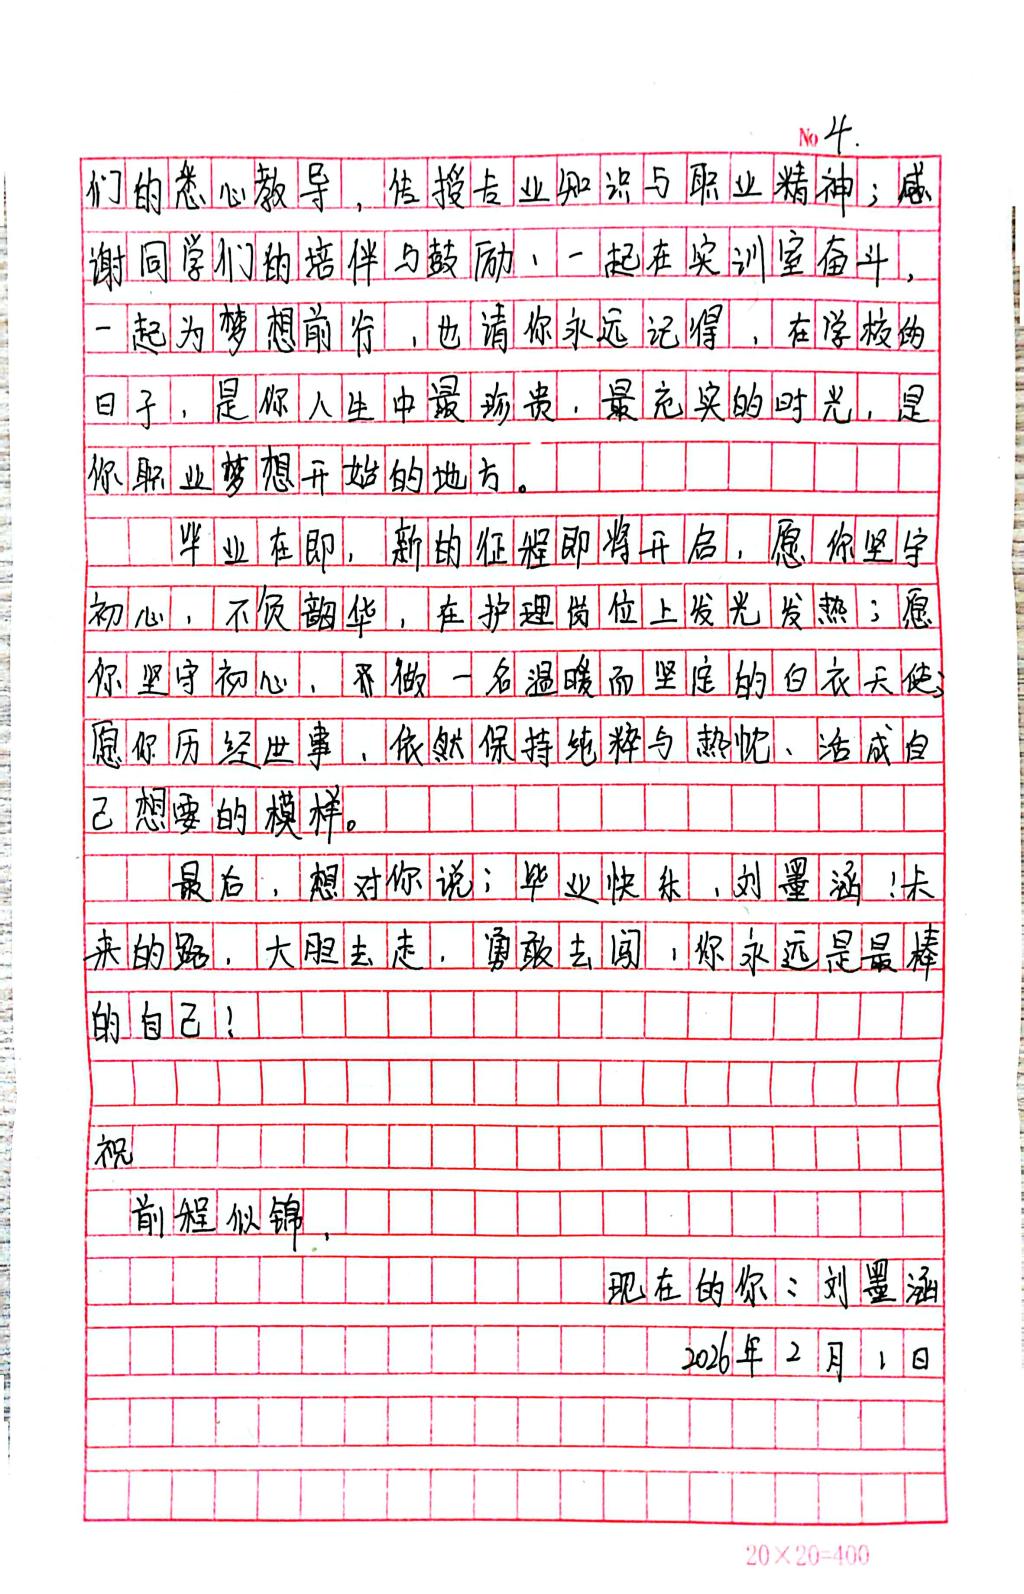 No 4.
们的悉心教导，传授专业知识与职业精神；感
谢同学们的陪伴与鼓励、一起在实训室奋斗，
一起为梦想前行，也请你永远记得，在学校的
日子，是你人生中最珍贵、最充实的时光，是
你职业梦想开始的地方。
毕业在即，新的征程即将开启，愿你坚守
初心，不负韶华，在护理岗位上发光发热；愿
你坚守初心、做一名温暖而坚定的白衣天使；
愿你历经世事、依然保持纯粹与热忱、活成自
己想要的模样。
最后，想对你说；毕业快乐，刘墨涵！未
来的路，大胆去走，勇敢去闯，你永远是最棒
的自己！
祝
前程似锦，
现在的你：刘墨涵
2026年2月1日
20×20=400